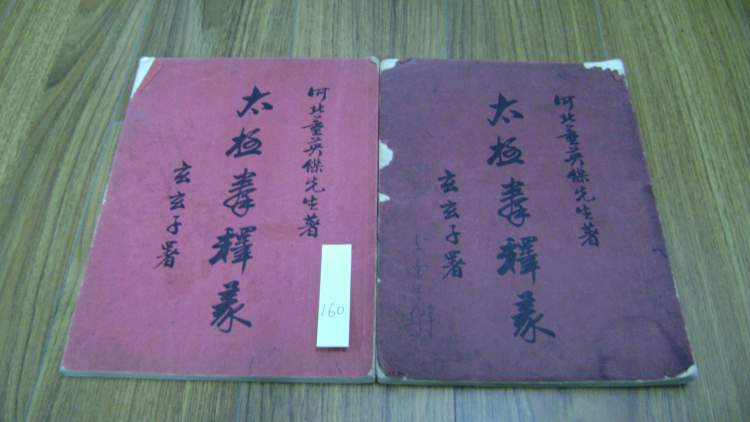 河北董英傑先生著
太極拳釋義
玄玄子署
160
河北董英傑先生著
太極拳釋義
玄玄子署